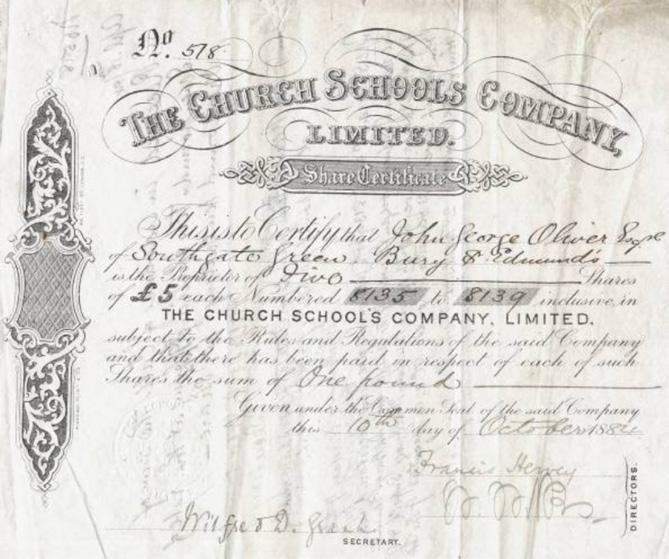 No. 578
THE CHURCH SCHOOLS COMPANY,
LIMITED.
Share Certificate
This is to Certify that John George Oliver Esqre
of Southgate Green Bury St Edmunds
is the Proprietor of Five Shares
of £5 each Numbered 8135 to 8139 inclusive, in
THE CHURCH SCHOOL'S COMPANY, LIMITED.
subject to the Rules and Regulations of the said Company
and that there has been paid in respect of each of such
Shares the sum of One pound
Given under the Common Seal of the said Company
this 10th day of October 188
Francis Hervey
DIRECTORS.
Wilfred D.
SECRETARY.